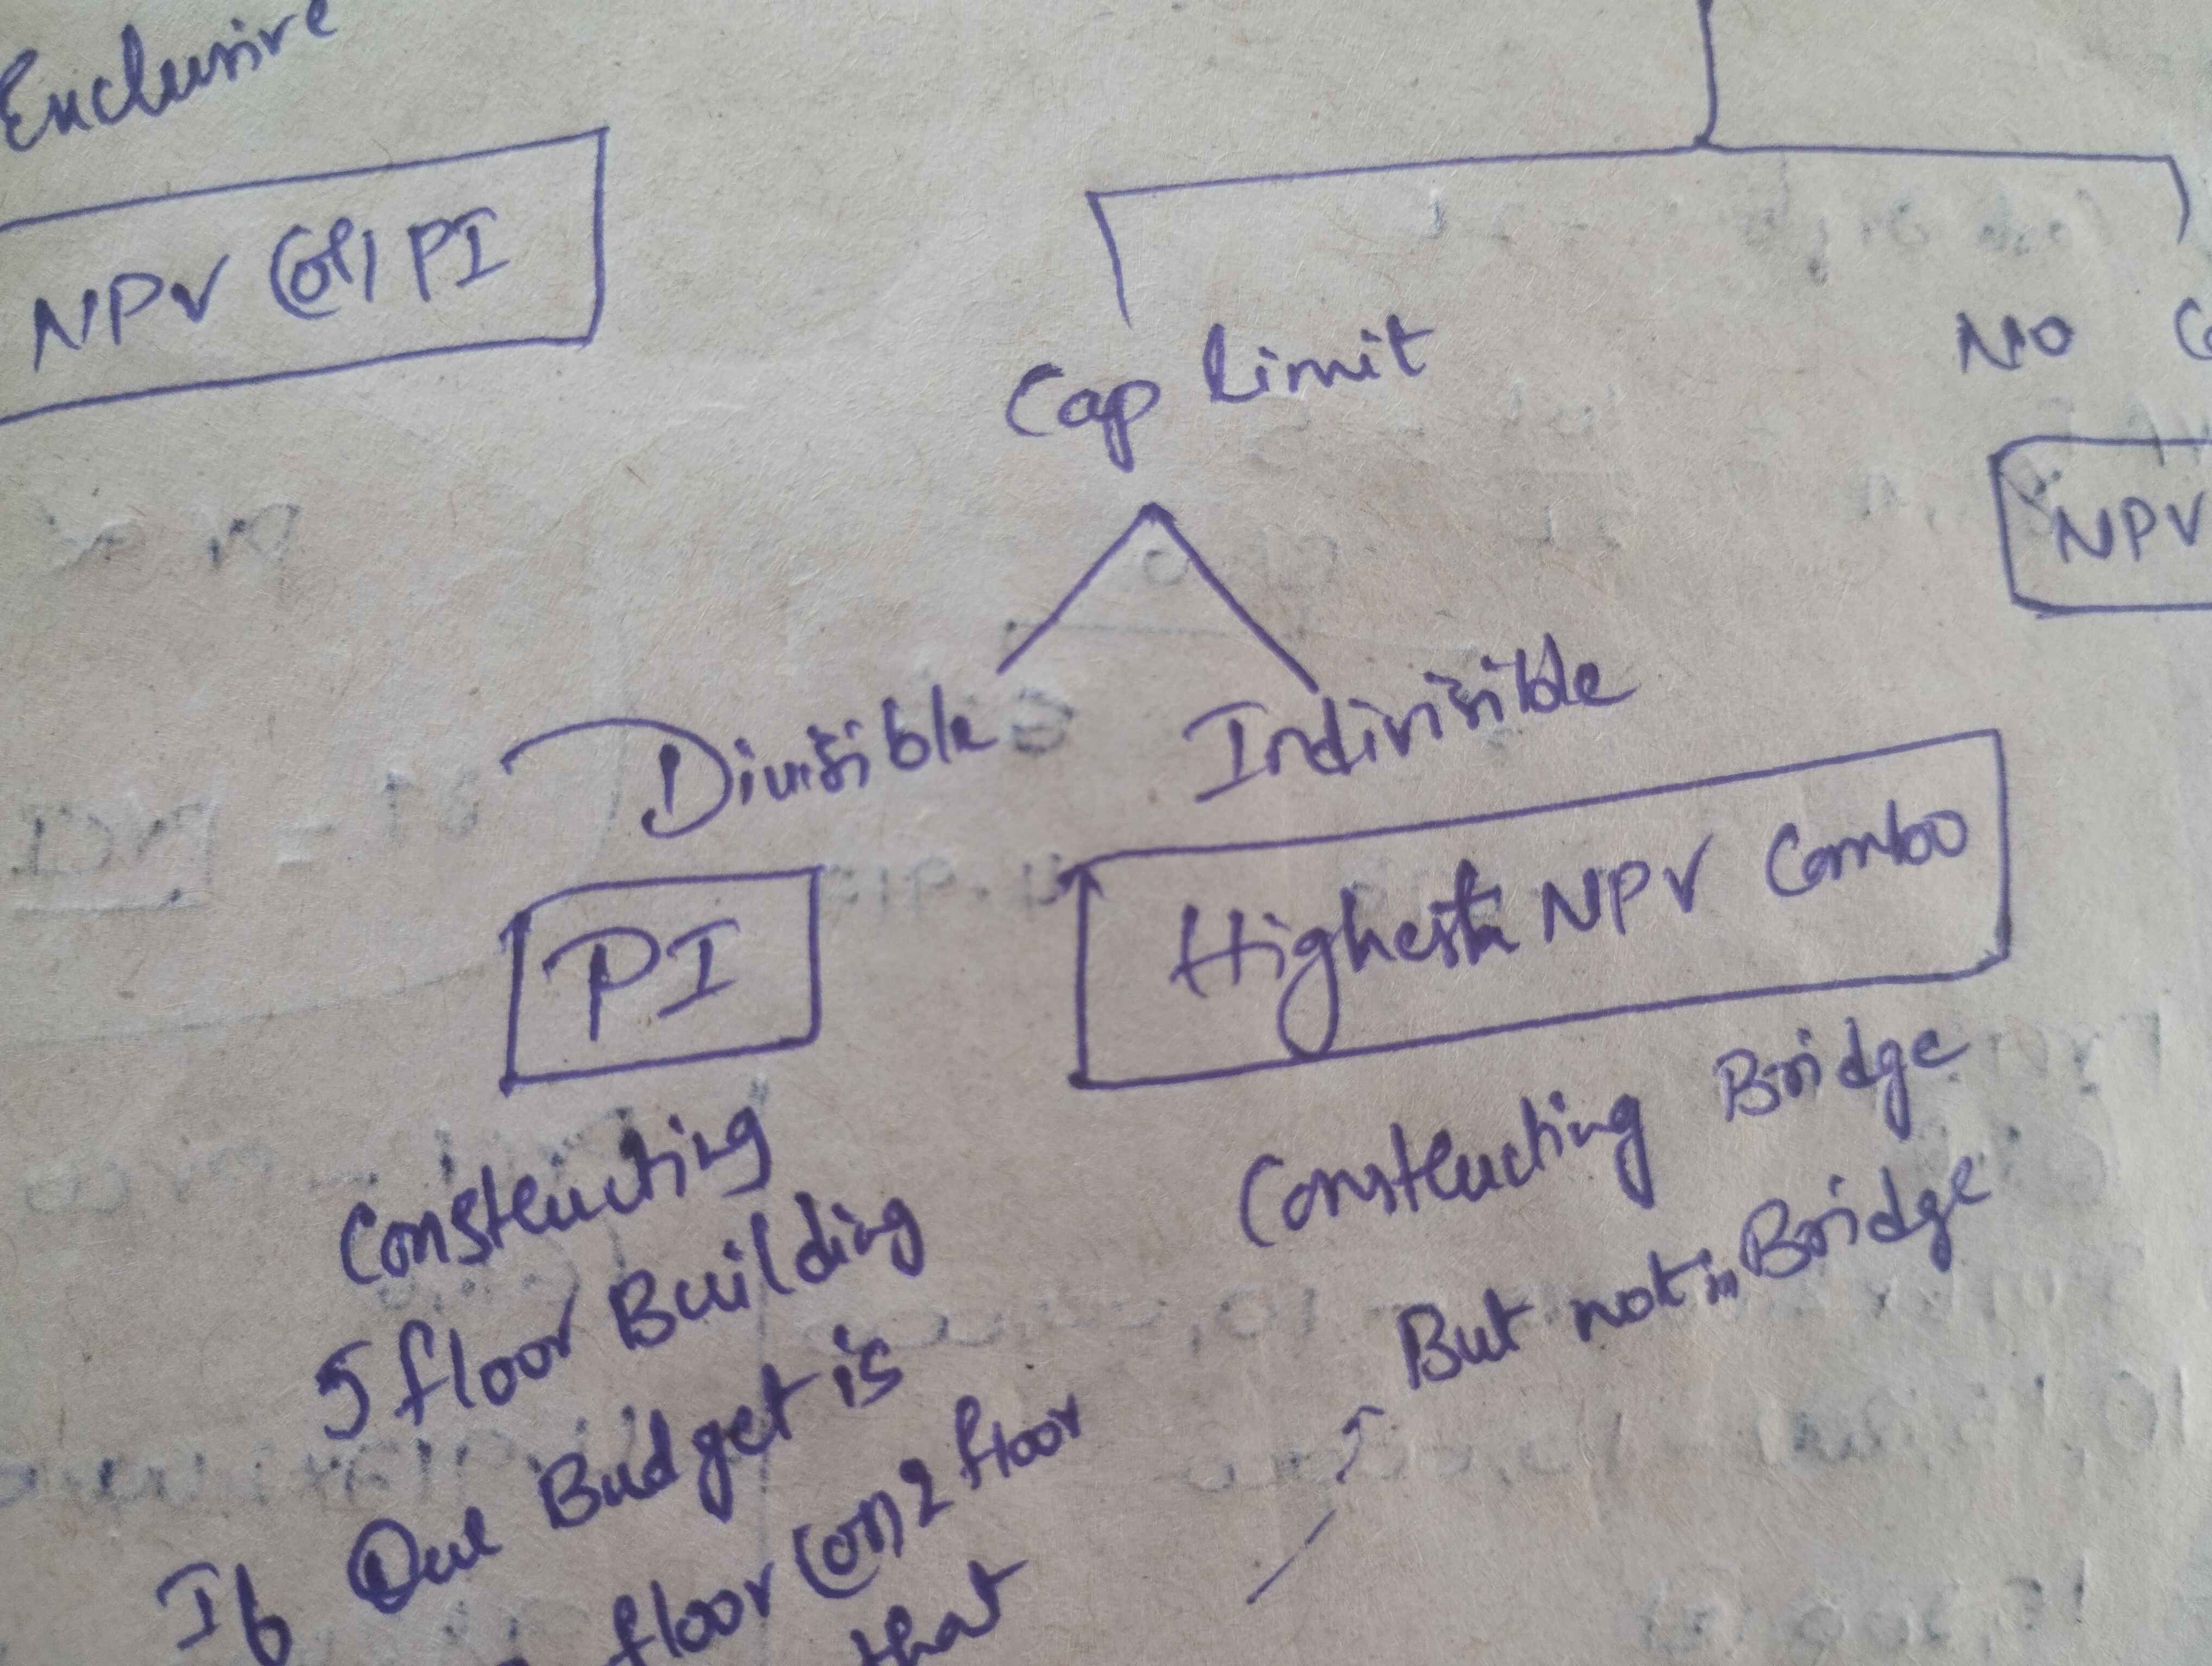 Exclusive
NPV (or) PI
Cap limit
No
NPV
Divisible
Indivisible
PI
Highest NPV Combo
Constructing
5 floor Building
If Our Budget is
floor (or) 2 floor
that
Constructing Bridge
But not in Bridge